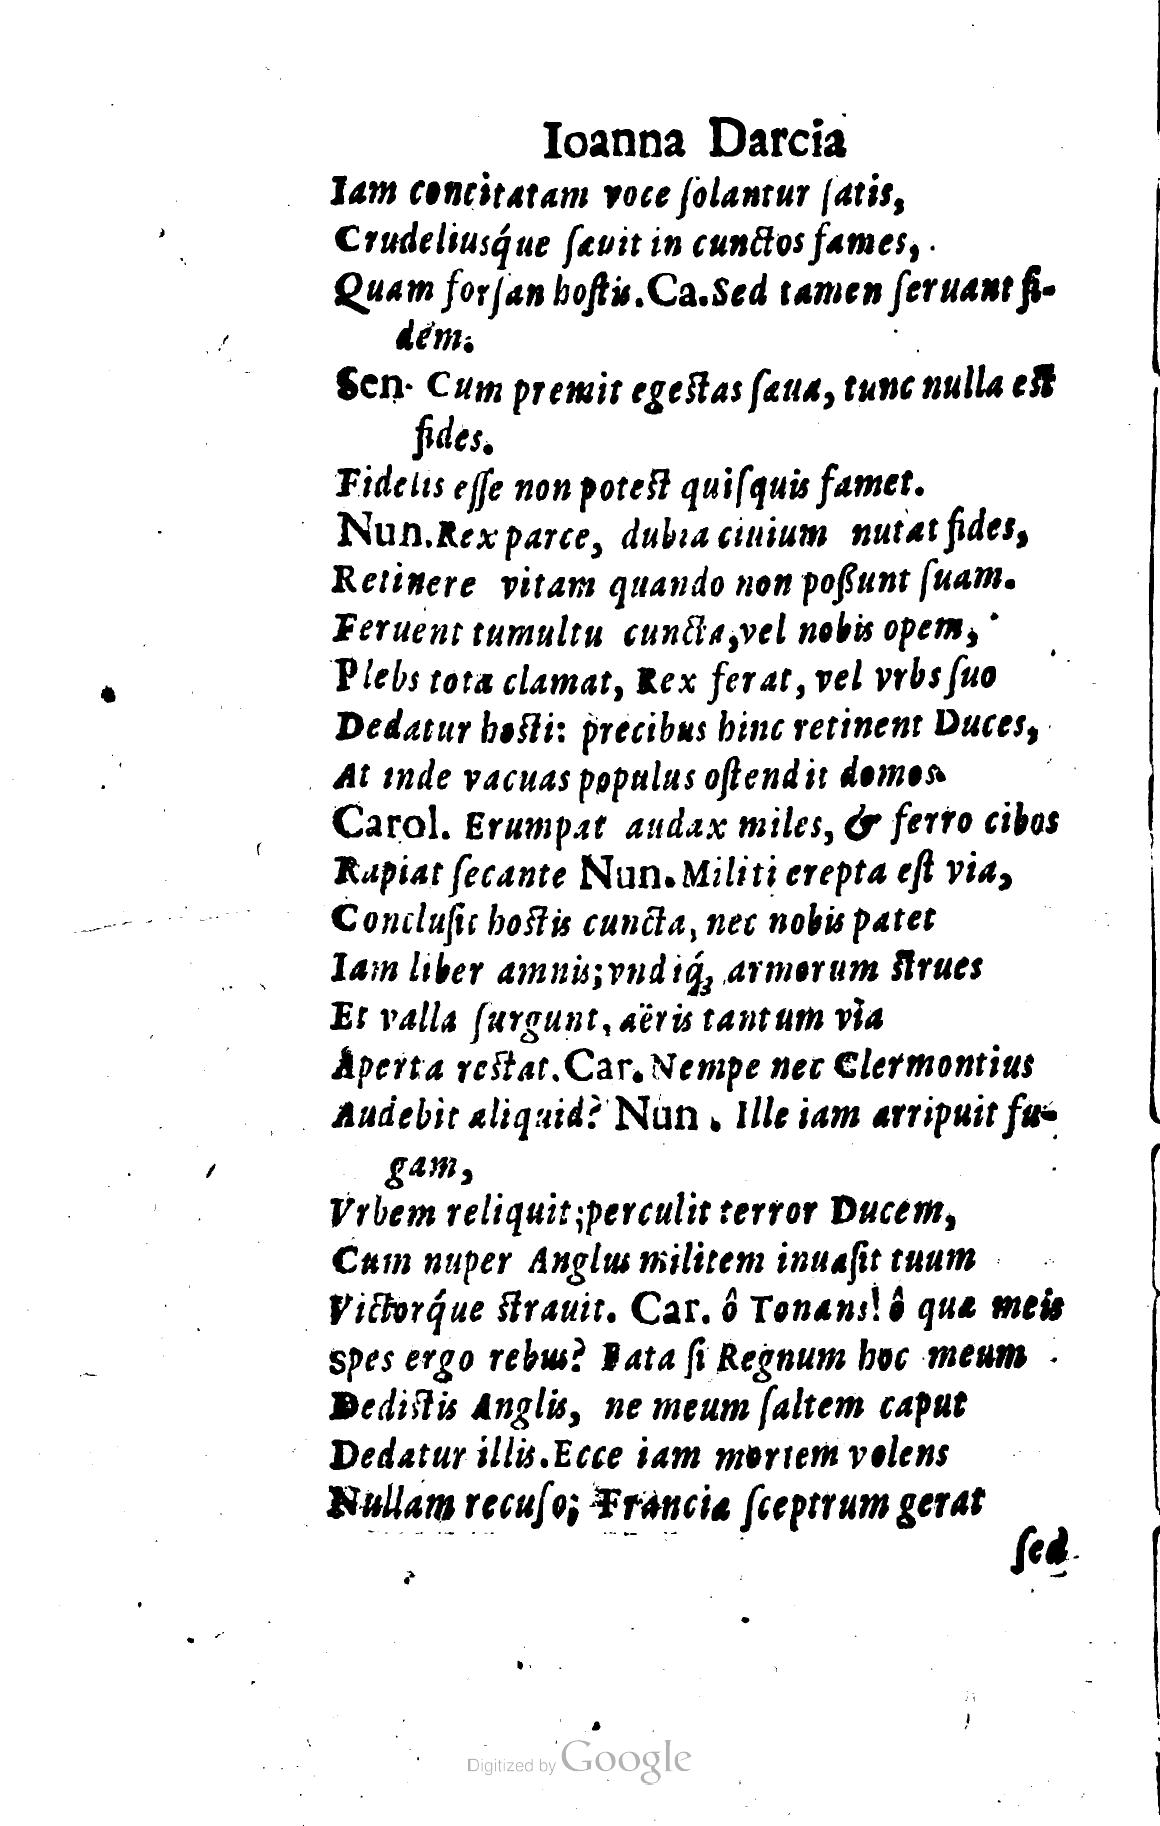 Ioanna Darcia
Iam concitatam voce ſolantur ſatis,
Crudeliusq́ue ſæuit in cunctos fames,
Quam forſan hoſtis. Ca. Sed tamen ſeruant fi-
dem.
Sen. Cum premit egeſtas ſæua, tunc nulla eſt
fides.
Fidelis eſſe non poteſt quiſquis famet.
Nun. Rex parce, dubia ciuium nutat fides,
Retinere vitam quando non poßunt ſuam.
Feruent tumultu cuncta, vel nobis opem,
Plebs tota clamat, Rex ferat, vel vrbs ſuo
Dedatur hoſti: precibus hinc retinent Duces,
At inde vacuas populus oſtendit domos.
Carol. Erumpat audax miles, & ferro cibos
Rapiat ſecante Nun. Militi erepta eſt via,
Concluſit hoſtis cuncta, nec nobis patet
Iam liber amnis; vndiq́; armorum ſtrues
Et valla ſurgunt, aëris tantum via
Aperta reſtat. Car. Nempe nec Clermontius
Audebit aliquid? Nun. Ille iam arripuit fu-
gam,
Vrbem reliquit; perculit terror Ducem,
Cum nuper Anglus militem inuaſit tuum
Victorq́ue ſtrauit. Car. ô Tonans! ô quæ meis
spes ergo rebus? Fata ſi Regnum hoc meum
Dediſtis Anglis, ne meum ſaltem caput
Dedatur illis. Ecce iam mortem volens
Nullam recuſo; Francia ſceptrum gerat
ſed
Digitized by Google